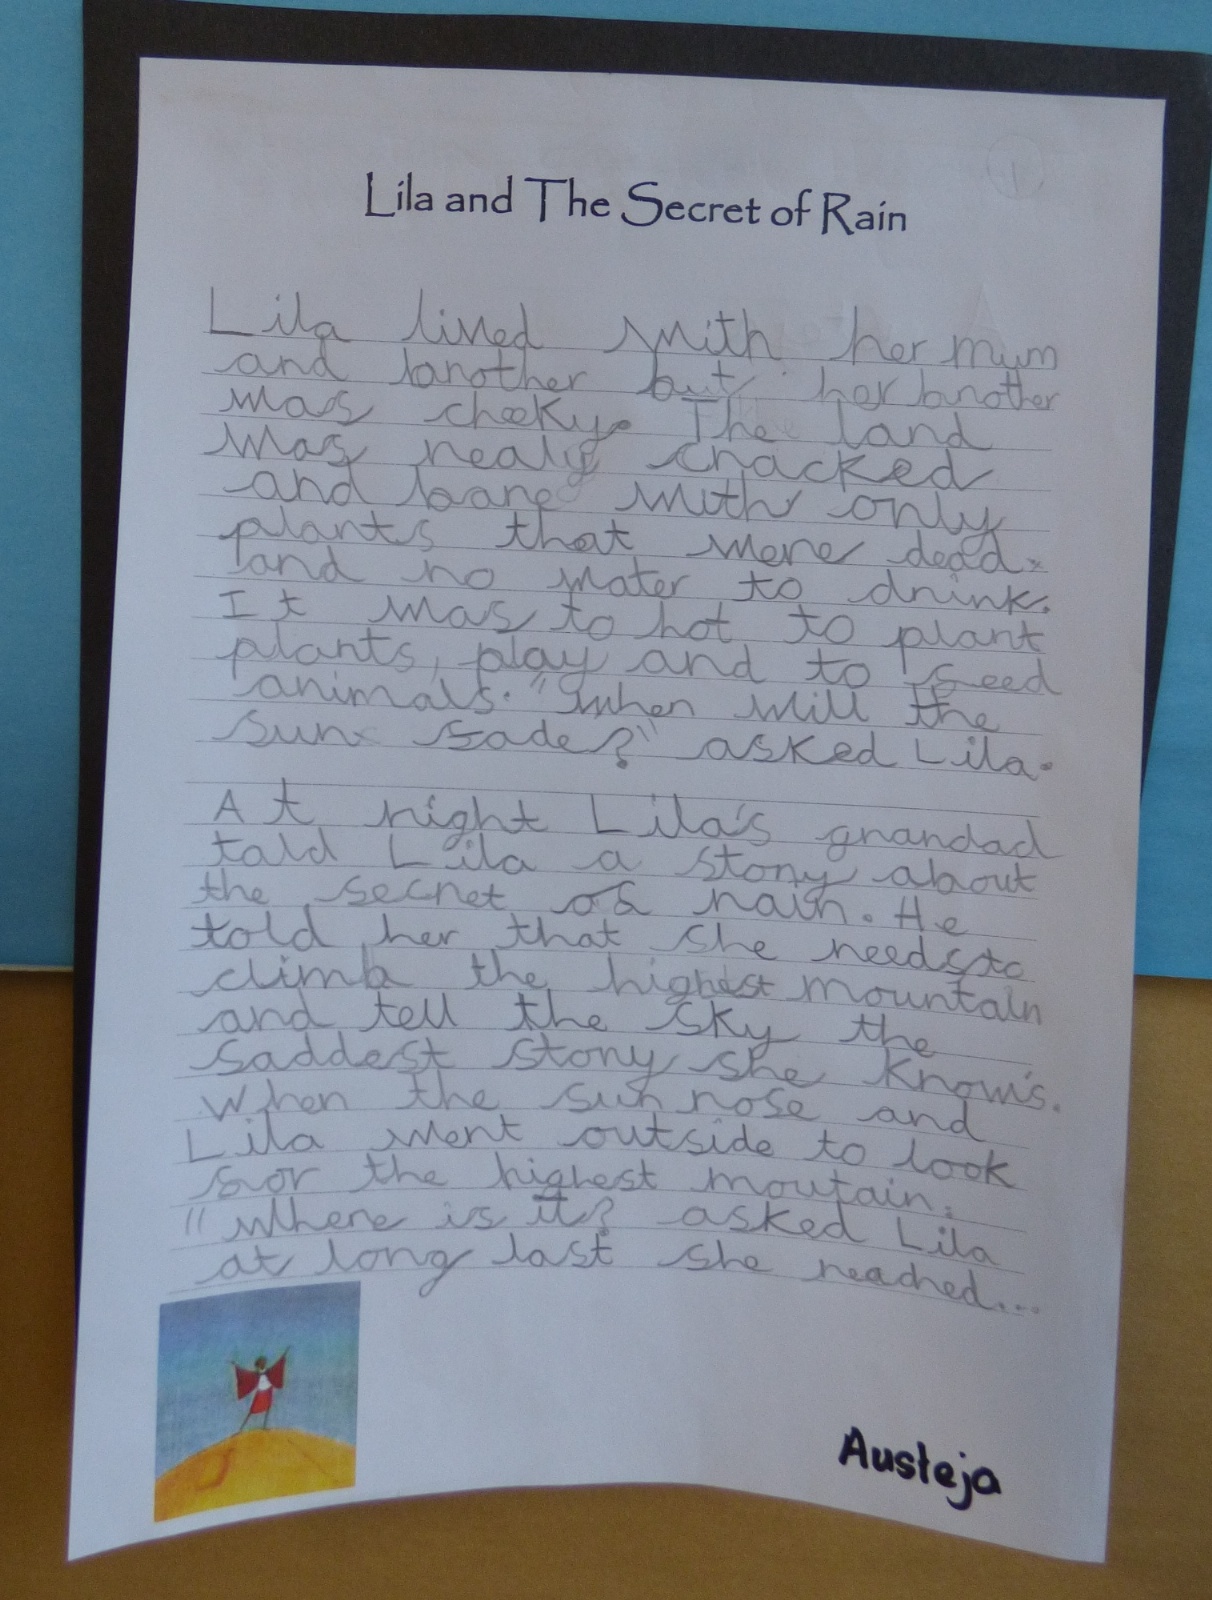 Lila and The Secret of Rain
Lila lived with her mum
and brother but her brother
was cheeky. The land
was realy cracked
and bare with only
plants that were dead.
and no water to drink.
It was to hot to plant
plants, play and to feed
animals. "When will the
sun fade?" asked Lila.
At night Lila's grandad
told Lila a story about
the secret of rain. He
told her that she needs to
climb the highest mountain
and tell the sky the
saddest story she know's.
When the sun rose and
Lila went outside to look
for the highest moutain.
"Where is it? asked Lila
at long last she reached...
Austeja